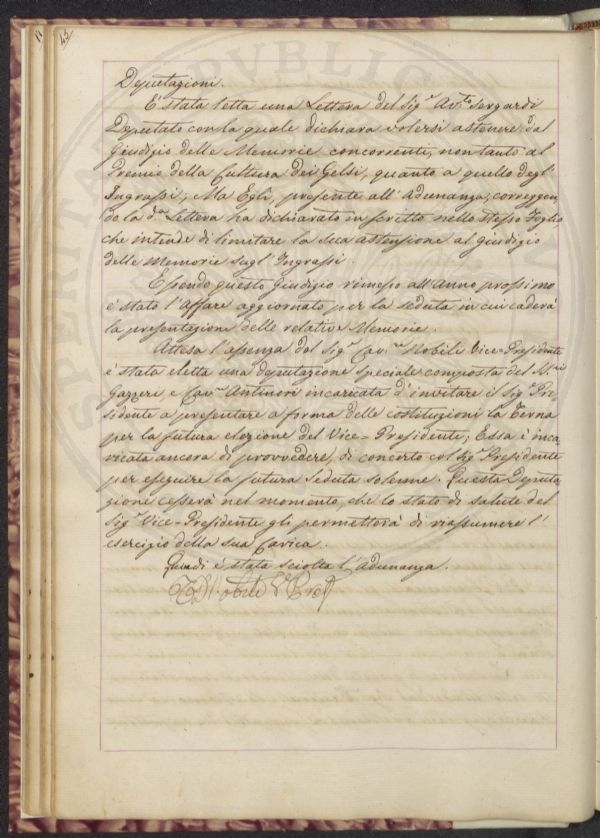 43
Deputazioni.
E' stata letta una Lettera del Sig.r Av.to Sergardi
Deputato con la quale dichiara volersi astenere dal
Giudizio delle Memorie concorrenti, non tanto al
Premio della Cultura dei Gelsi, quanto a quello degl'
Ingrassi; Ma Egli, presente all'Adunanza, correggen
do la d.a Lettera ha dichiarato in scritto nello stesso Foglio,
che intende di limitare la sua astensione al giudizio
delle Memorie sugl'Ingrassi.
Essendo questo Giudizio rimesso all'Anno prossimo
è stato l'Affare aggiornato per la seduta in cui caderà
la presentazione delle relative Memorie.
Attesa l'assenza del Sig.r Cav.re Nobili Vice-Presidente
è stata eletta una deputazione speciale composta dei
Gazzeri, e Cav.re Antinori incaricata d'invitare il Sig.r Pre-
sidente a presentare a forma delle costituzioni la Terna
per la futura elezione del Vice-Presidente; Essa è inca
ricata ancora di provvedere, di concerto col Sig.r Presidente
per eseguire la futura Seduta Solenne. Questa Deputa
zione cesserà nel momento, che lo stato di salute del
Sig.r Vice-Presidente gli permetterà di riassumere l'
esercizio della sua Carica.
Quindi è stata sciolta l'Adunanza.